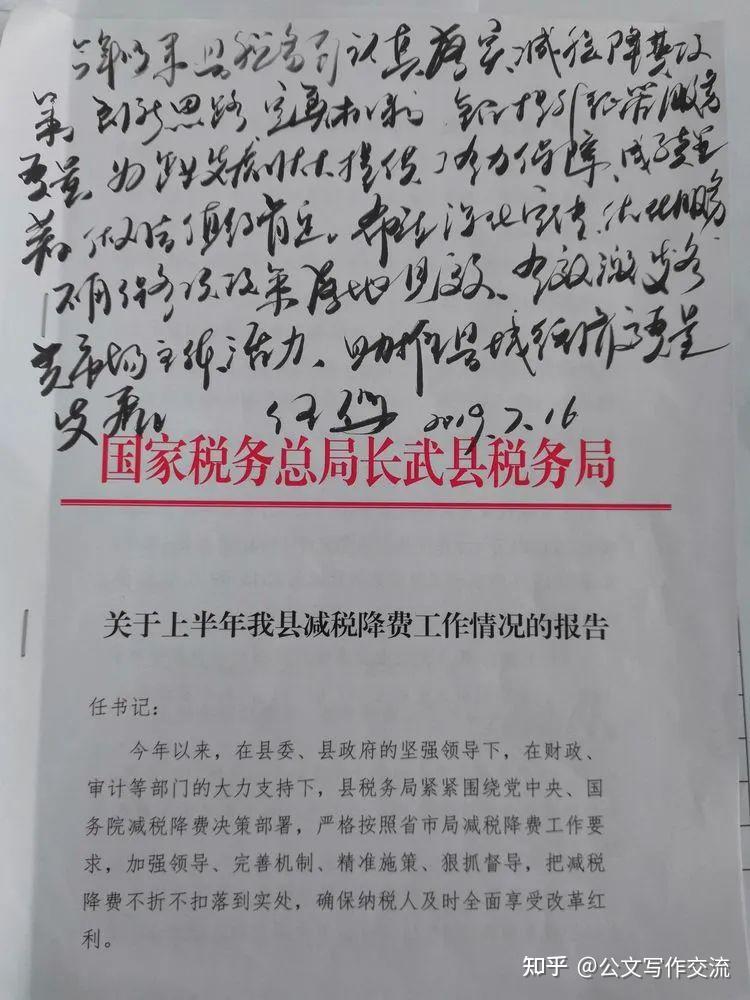 今年以来,县税务局认真落实减税降费政
策,创新思路,完善机制,全面提升征管服务
质量,为全县发展大局提供了有力保障,成绩
值得肯定。希望深化宣传,优化服务
确保各项政策落地见效,有效激发各
类市场主体活力,助推县域经济高质量
发展。 2019.7.16
国家税务总局长武县税务局
关于上半年我县减税降费工作情况的报告
任书记:
今年以来,在县委、县政府的坚强领导下,在财政、
审计等部门的大力支持下,县税务局紧紧围绕党中央、国
务院减税降费决策部署,严格按照省市局减税降费工作要
求,加强领导、完善机制、精准施策、狠抓督导,把减税
降费不折不扣落到实处,确保纳税人及时全面享受改革红
利。
知乎 @公文写作交流